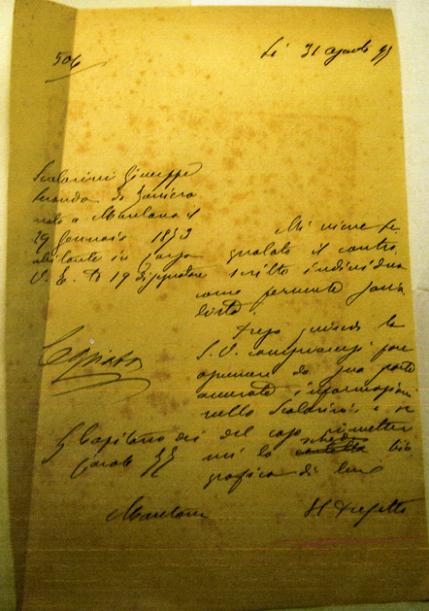 506
Li 31 agosto 93
Scalarini Giuseppe
nato a Mantova il
29 Gennaio 1873
abitante in Corso
V. E. N 19 disegnatore
Mi viene se
gnalato il contro
scritto individuo
come fervente socia
lista.
Prego quindi la
S. V. compiacersi fare
assumere da sua parte
accurate informazioni
sullo Scalarini e se
del caso rimetter
mi la scheda bio
grafica di lui
Copiato
Sig Capitano dei
Carab RR
Mantova
Il Prefetto